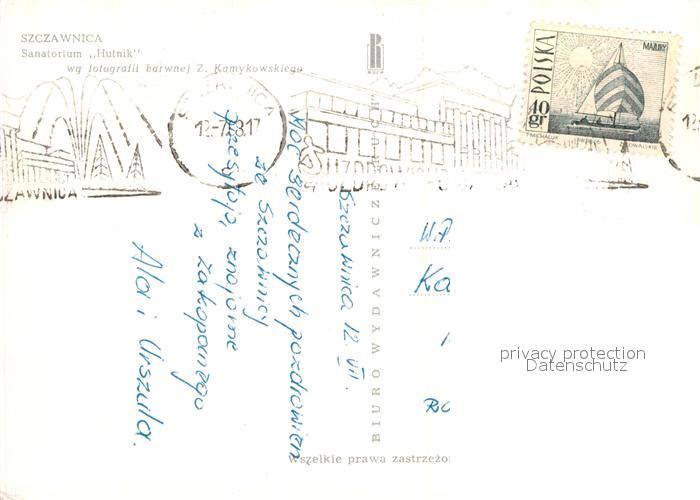 SZCZAWNICA
Sanatorium „Hutnik"
wg fotografii barwnej Z. Kamykowskiego
RUCH
POLSKA
MAZURY
40
gr
SZCZAWNICA
UZDROWISKO
Szczawnica 12. VII.
Moc serdecznych pozdrowień
ze Szczawnicy
przesyłają znajome
z Zakopanego
Ala i Urszula.
BIURO WYDAWNICZE „RUCH"
W.P.
Ka
privacy protection
Datenschutz
Wszelkie prawa zastrzeżo